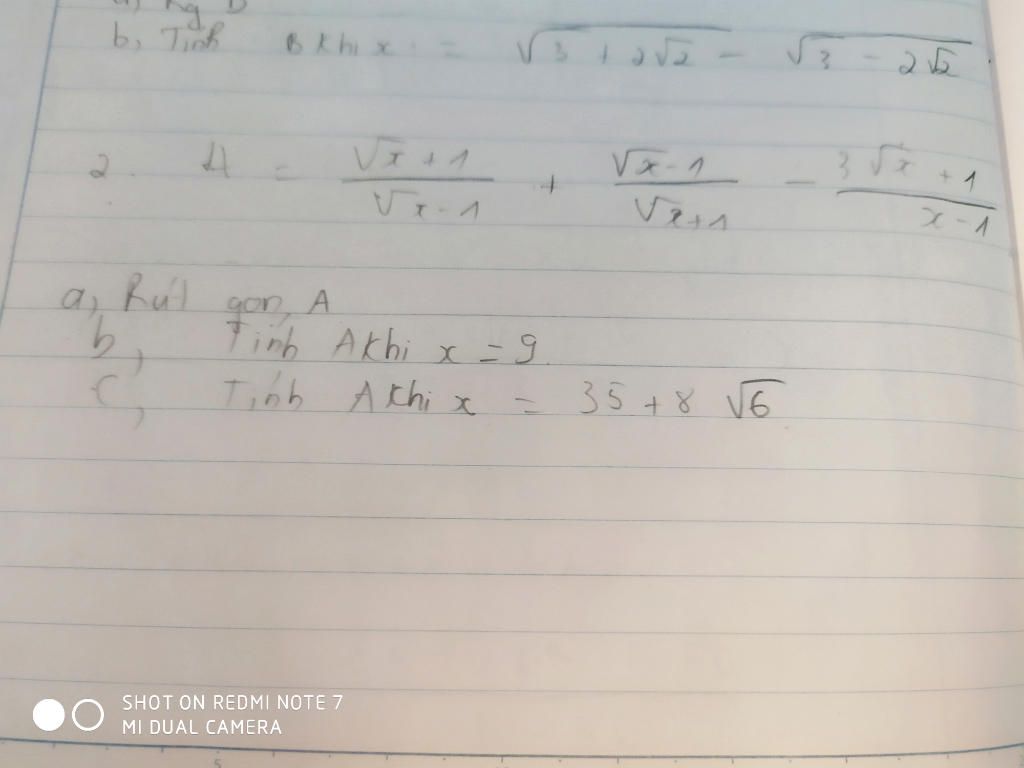 a, Rg B
b, Tính B khi x = √(3 + 2√2) - √(3 - 2√2)
2. A = (√x + 1)/(√x - 1) + (√x - 1)/(√x + 1) - (3√x + 1)/(x - 1)
a, Rút gọn A
b, Tính A khi x = 9.
c, Tính A khi x = 35 + 8√6
SHOT ON REDMI NOTE 7
MI DUAL CAMERA
5